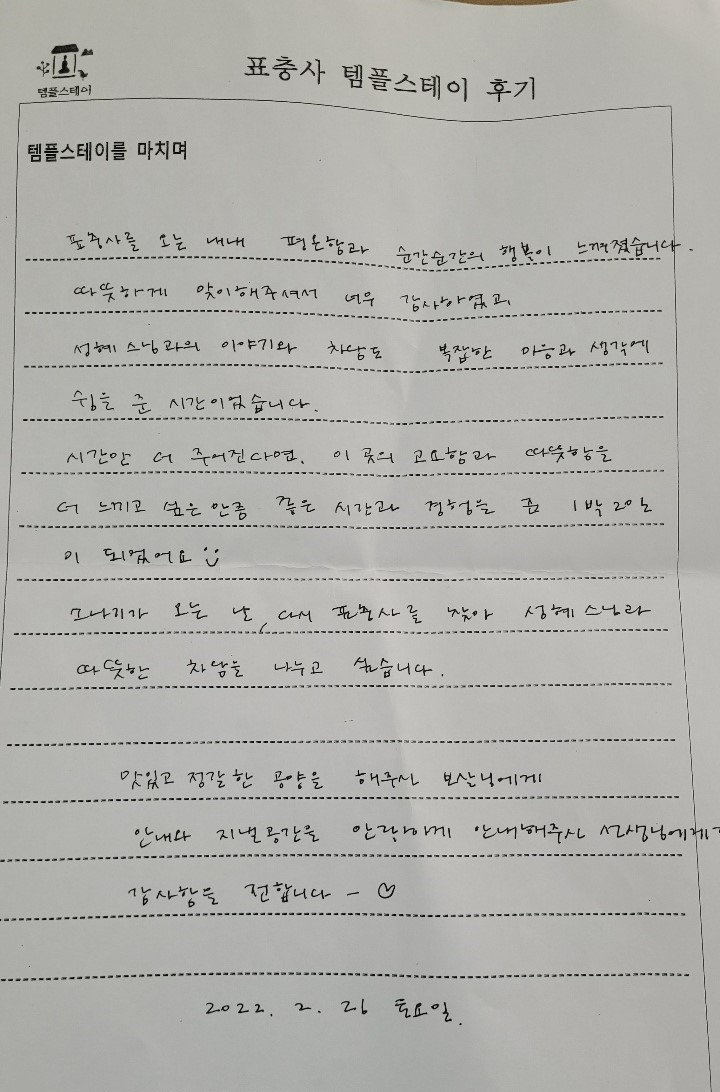 템플스테이
표충사 템플스테이 후기
템플스테이를 마치며
표충사를 오는 내내 평온함과 순간순간의 행복이 느껴졌습니다.
따뜻하게 맞이해주셔서 너무 감사하였고,
성혜스님과의 이야기와 차담도 복잡한 마음과 생각에
쉼을 준 시간이었습니다.
시간만 더 주어진다면, 이 곳의 고요함과 따뜻함을
더 느끼고 싶은 만큼 좋은 시간과 경험을 준 1박 2일
이 되었어요
소나기가 오는 날, 다시 표충사를 찾아 성혜스님과
따뜻한 차담을 나누고 싶습니다.
맛있고 정갈한 공양을 해주신 보살님에게
안내와 지낼공간을 안락하게 안내해주신 선생님에게
감사함을 전합니다 - ♡
2022. 2. 26 토요일.